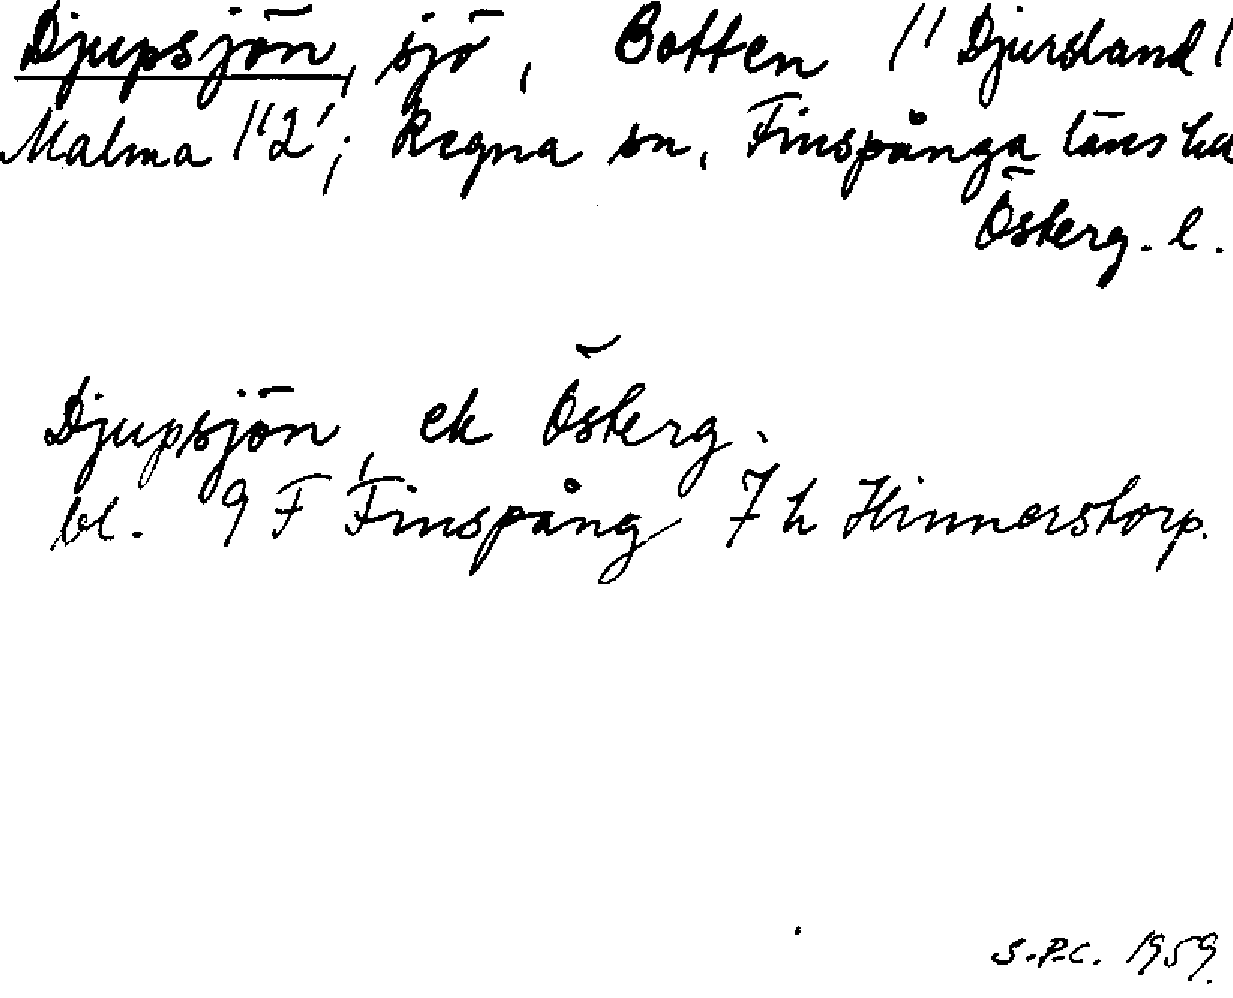 Djupsjön, sjö, Botten 1" Djursland 1
Malma 1"2'; Regna sn, Finspånga läns hd
Österg. l.
Djupsjön, ek Österg.
bl. 9 F Finspång 7 h Hinnerstorp.
S.P.C. 1959.